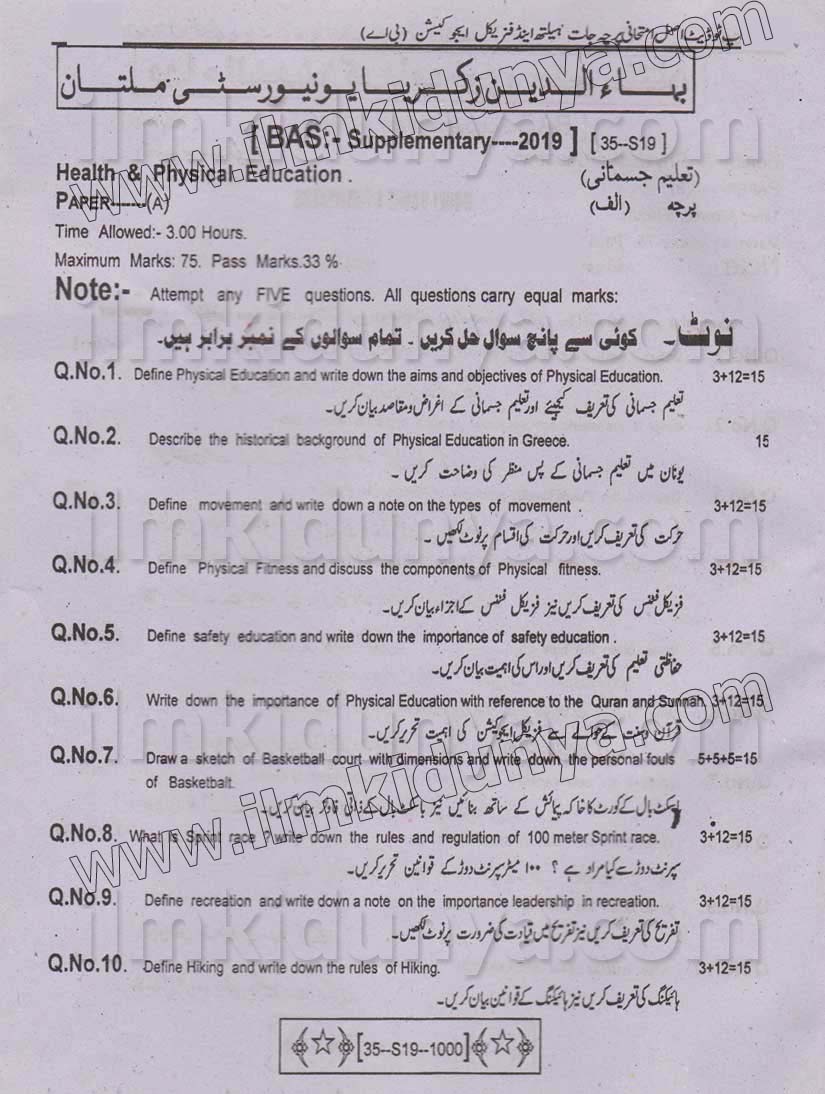 پ ٹو ڈیٹ اصل امتحانی پرچہ جات ہیلتھ اینڈ فزیکل ایجوکیشن (بی اے)
بہاءالدین زکریا یونیورسٹی ملتان
[ BAS:- Supplementary----2019 ] [ 35--S19 ]
Health & Physical Education . (تعلیم جسمانی)
PAPER------(A) پرچہ (الف)
Time Allowed:- 3.00 Hours.
Maximum Marks: 75. Pass Marks.33 %
Note:- Attempt any FIVE questions. All questions carry equal marks:
نوٹ۔ کوئی سے پانچ سوال حل کریں ۔ تمام سوالوں کے نمبر برابر ہیں۔
Q.No.1. Define Physical Education and write down the aims and objectives of Physical Education. 3+12=15
تعلیم جسمانی کی تعریف کیجیئے اور تعلیم جسمانی کے اغراض و مقاصد بیان کریں۔
Q.No.2. Describe the historical background of Physical Education in Greece. 15
یونان میں تعلیم جسمانی کے پس منظر کی وضاحت کریں ۔
Q.No.3. Define movement and write down a note on the types of movement . 3+12=15
حرکت کی تعریف کریں اور حرکت کی اقسام پر نوٹ لکھیں ۔
Q.No.4. Define Physical Fitness and discuss the components of Physical fitness. 3+12=15
فزیکل فٹنس کی تعریف کریں نیز فزیکل فٹنس کے اجزاء بیان کریں۔
Q.No.5. Define safety education and write down the importance of safety education . 3+12=15
حفاظتی تعلیم کی تعریف کریں اور اس کی اہمیت بیان کریں۔
Q.No.6. Write down the importance of Physical Education with reference to the Quran and Sunnah. 3+12=15
قرآن و سنت کے حوالے سے فزیکل ایجوکیشن کی اہمیت تحریر کریں۔
Q.No.7. Draw a sketch of Basketball court with dimensions and write down the personal fouls 5+5+5=15
of Basketball.
باسکٹ بال کے کورٹ کا خاکہ پیمائش کے ساتھ بنائیں نیز باسکٹ بال کے ذاتی فاؤلز بیان کریں۔
Q.No.8. What is Sprint race ? write down the rules and regulation of 100 meter Sprint race. 3+12=15
سپرنٹ دوڑ سے کیا مراد ہے ؟ ۱۰۰ میٹر سپرنٹ دوڑ کے قوانین تحریر کریں۔
Q.No.9. Define recreation and write down a note on the importance leadership in recreation. 3+12=15
تفریح کی تعریف کریں نیز تفریح میں قیادت کی ضرورت پر نوٹ لکھیں۔
Q.No.10. Define Hiking and write down the rules of Hiking. 3+12=15
ہائیکنگ کی تعریف کریں نیز ہائیکنگ کے قوانین بیان کریں۔
[35--S19--1000]
www.ilmkidunya.com
www.ilmkidunya.com
ilmkidunya.com
ilmkidunya.com
ilmkidunya.com
ilmkidunya.com
ilmkidunya.com
ilmkidunya.com